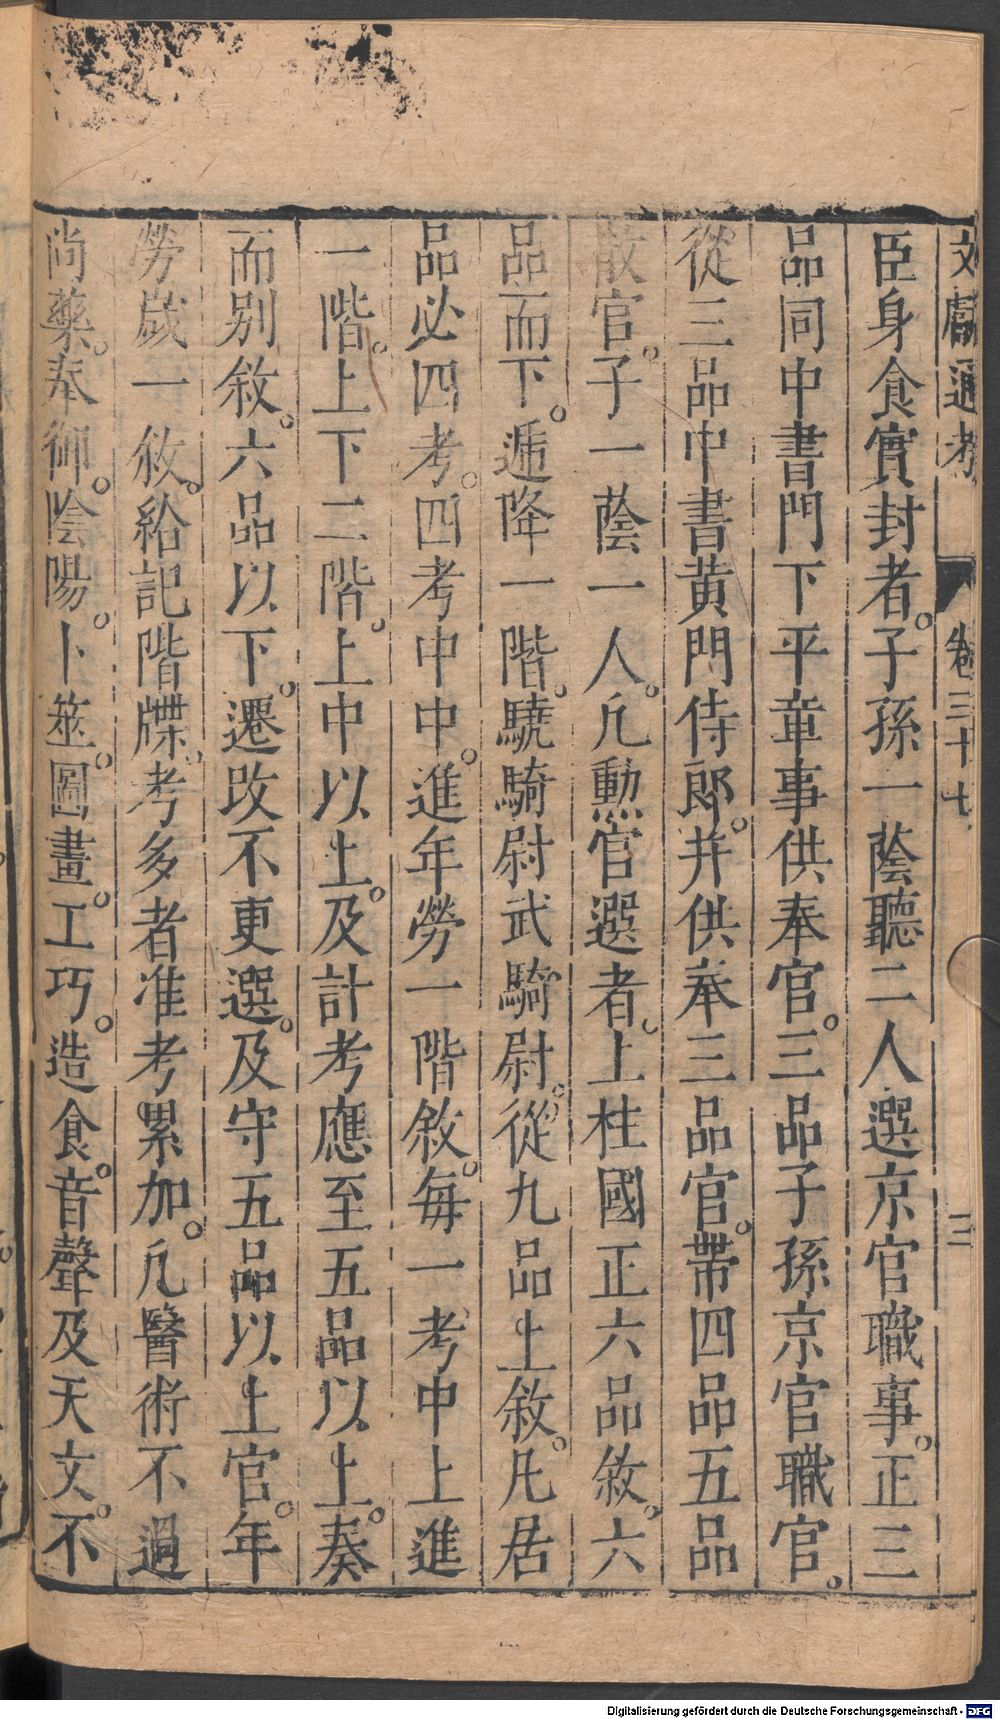 文獻通考 卷三十七 三
臣身食實封者。子孫一蔭聽二人選京官職事。正三
品同中書門下平章事供奉官。三品子孫京官職官。
從三品中書黃門侍郎。并供奉三品官。帶四品五品
散官。子一蔭一人。凡勳官選者。上柱國正六品敘。六
品而下。遞降一階。驍騎尉武騎尉。從九品上敘。凡居
品必四考。四考中中。進年勞一階敘。每一考中上進
一階。上下二階。上中以上。及計考應至五品以上。奏
而別敘。六品以下。遷改不更選。及守五品以上官。年
勞歲一敘。給記階牒。考多者准考累加。凡醫術不過
尚藥。奉御。陰陽。卜筮。圖畫。工巧。造食。音聲及天文。不
Digitalisierung gefördert durch die Deutsche Forschungsgemeinschaft - DFG